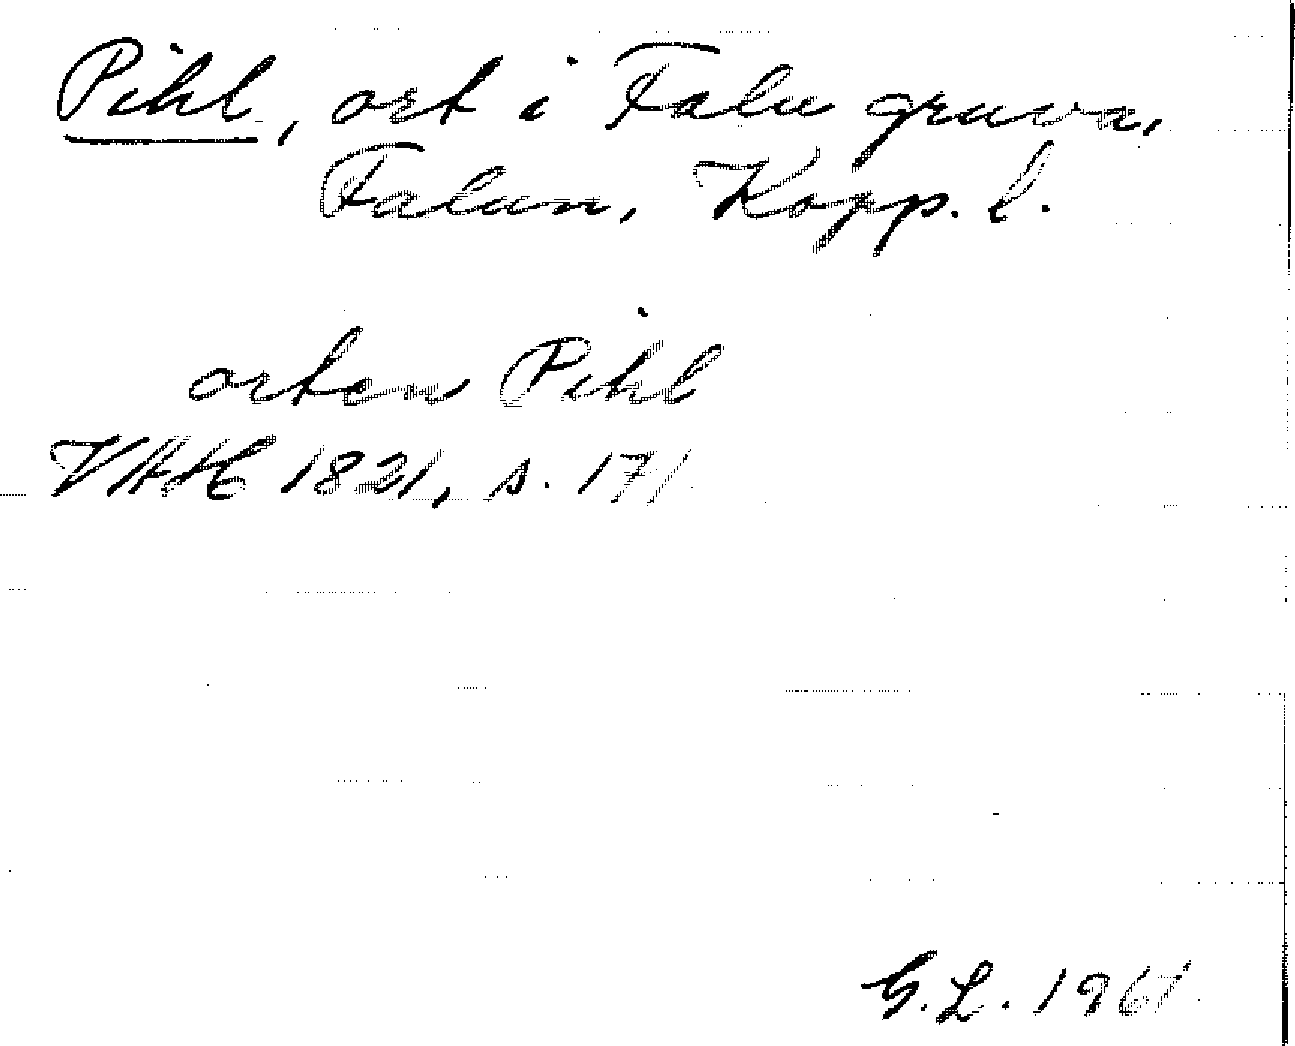 Pihl, ort i Falu gruva,
Falun, Kopp. l.
orten Pihl
VAH 1821, s. 171
G.L. 1967